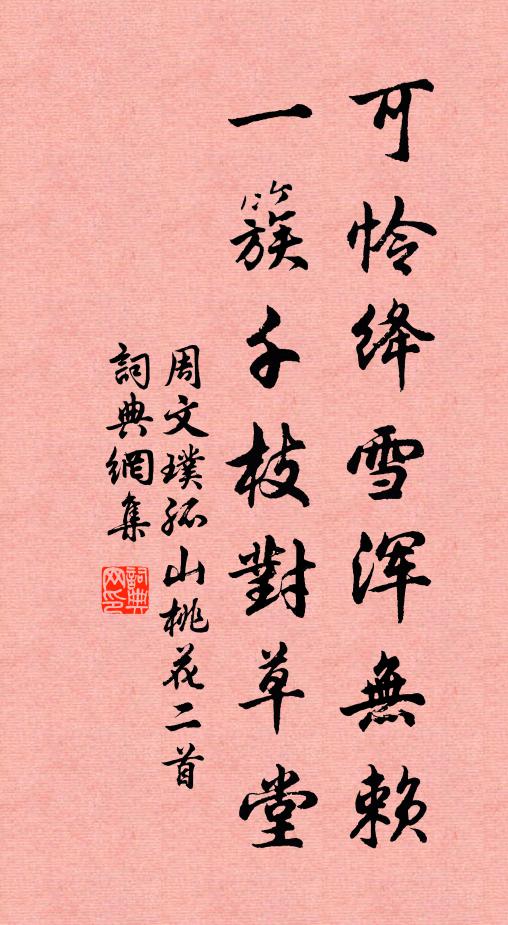 可怜绛雪浑無赖
一簇千枝對草堂
周文璞孤山桃花二首
詞典網集
詞典
网印